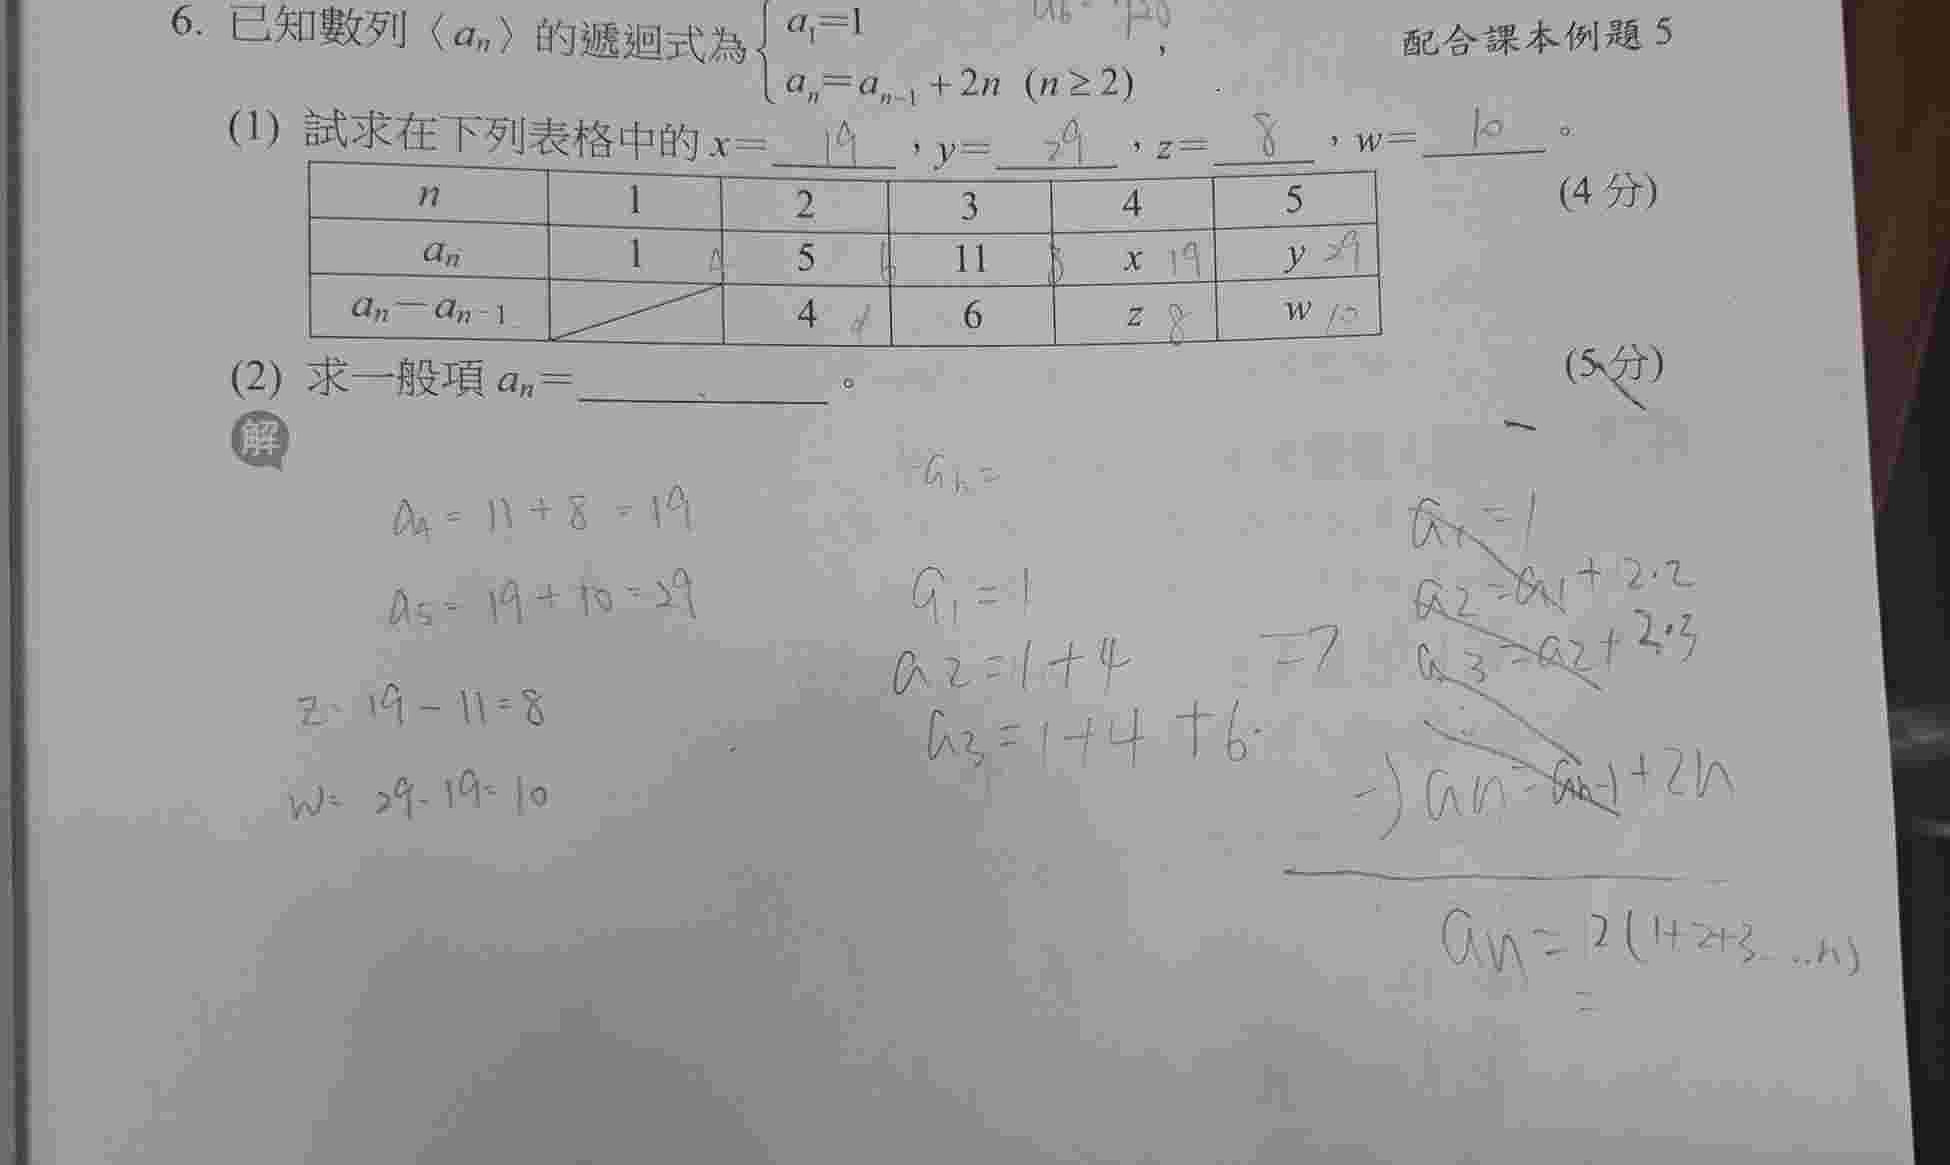 6. 已知數列〈aₙ〉的遞迴式為 { a₁=1
aₙ=aₙ₋₁+2n (n≥2) ,
配合課本例題 5
(1) 試求在下列表格中的 x= 19 , y= 29 , z= 8 , w= 10 。
(4 分)
n 1 2 3 4 5
aₙ 1 4 5 6 11 8 x 19 y 29
aₙ-aₙ₋₁ 4 4 6 z 8 w 10
(2) 求一般項 aₙ= 。
(5 分)
解
a₄ = 11 + 8 = 19
a₅ = 19 + 10 = 29
z = 19 - 11 = 8
w = 29 - 19 = 10
aₙ =
a₁ = 1
a2 = 1 + 4
a3 = 1 + 4 + 6
=7
a₁ = 1
a2 = a1 + 2·2
a3 = a2 + 2·3
⋮
-) an = an-1 + 2n
an = 2(1+2+3...n)
=